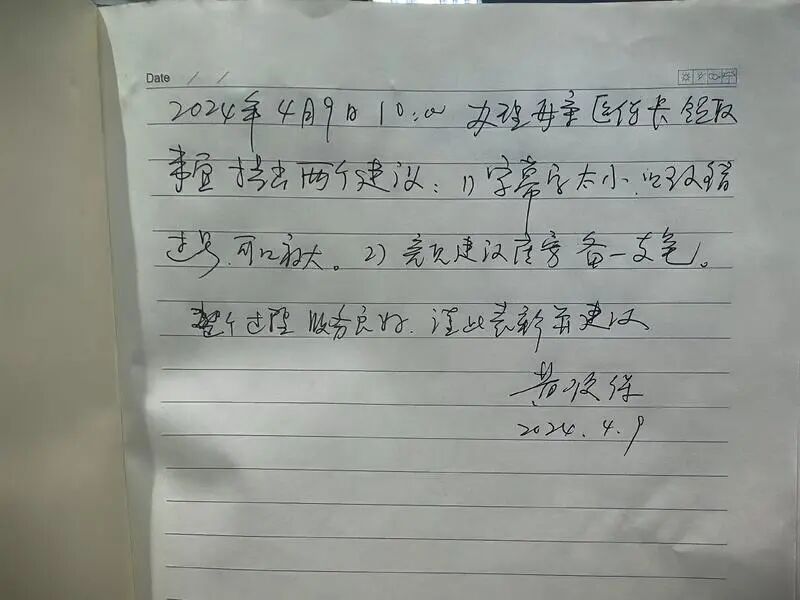 Date / /
2024年4月9日10:00 办理母亲医保卡领取
事宜 提出两个建议：1）字幕字太小，以致错
过号，可以放大。2）意见建议座旁备一支笔。
整个过程服务良好，谨此表彰并建议
黄
2024.4.9